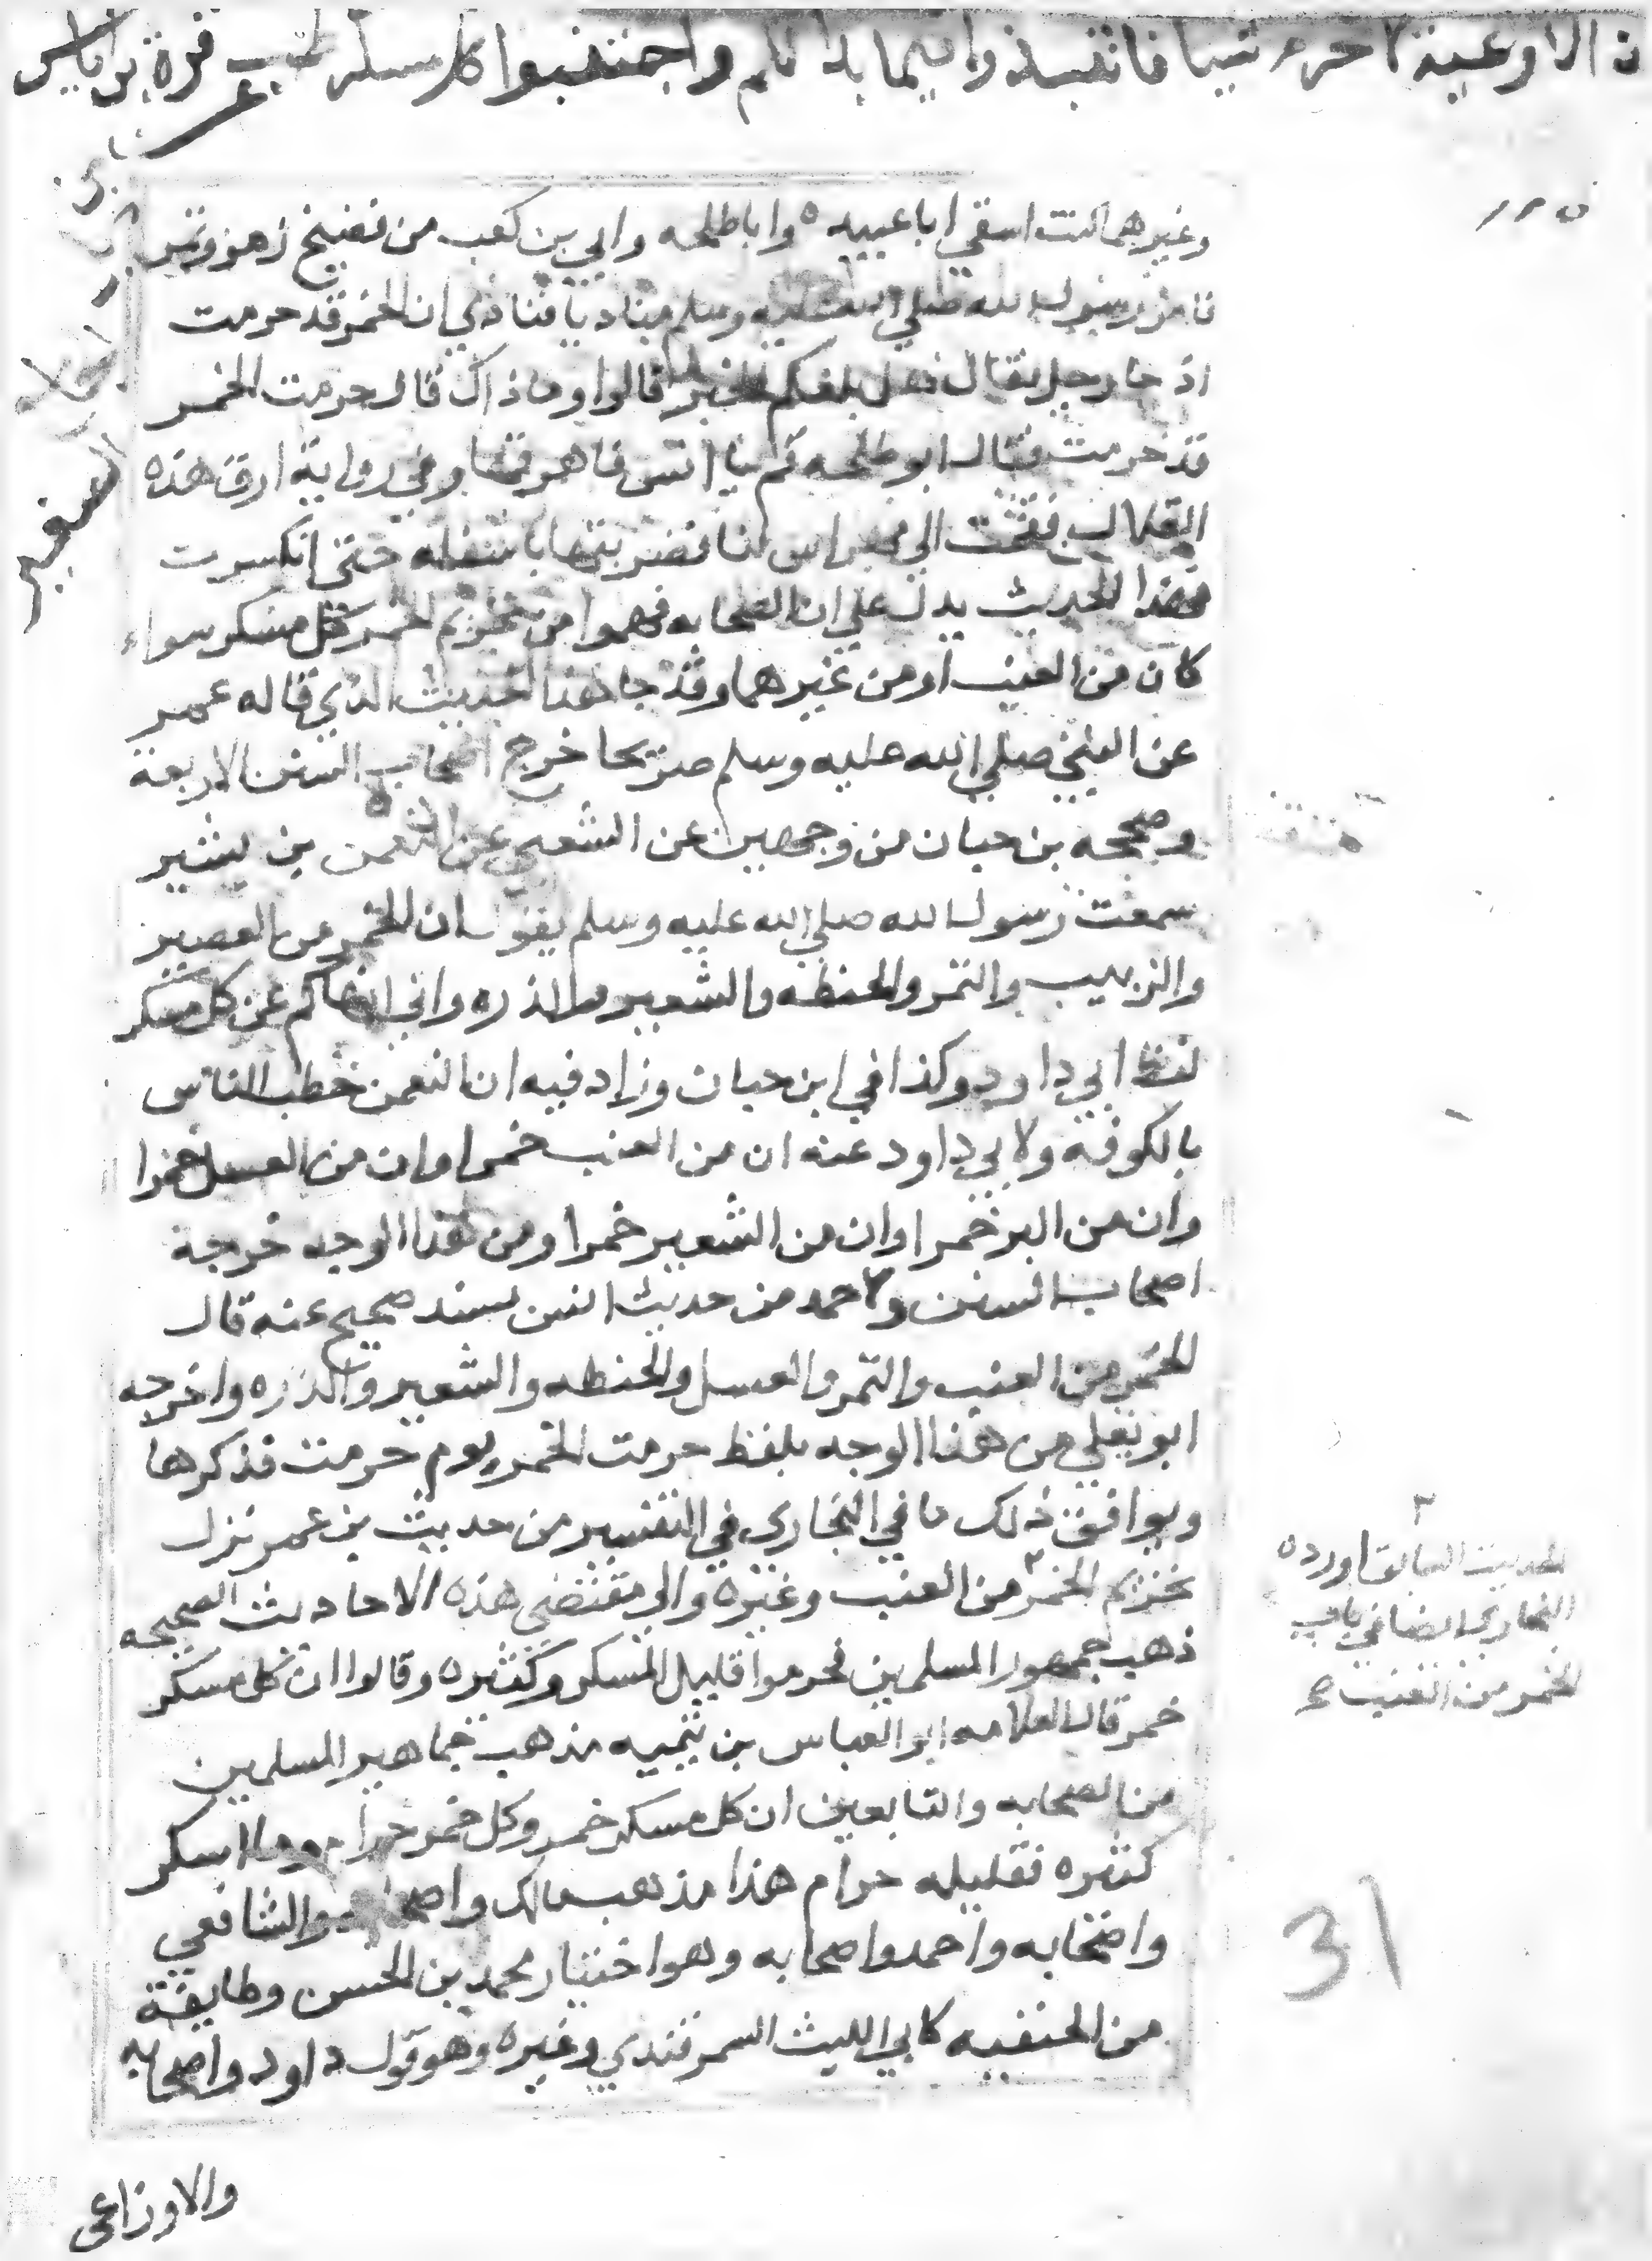 ن الاوعية لا تحرم شيا فانتبذوا فيما بدا لكم واجتنبوا كل مسكر طب عن قرة بن اياس
وغيرهما كنت اسقي ابا عبيده وابا طلحه وابي بن كعب من فضيخ زهو وتمر
فامر رسول الله صلي الله عليه وسلم مناديا فنادي ان الخمر قد حرمت
اذ جا رجل فقال هل بلغكم الخبر قالوا وما ذاك قال حرمت الخمر
قد حرمت فقال ابو طلحه قم يا انس فاهرقها وفي رواية ارق هذه
القلال فقمت الي مهراس لنا فضربتها باسفله حتي انكسرت
فهذا الحديث يدل علي ان الصحابه فهموا من تحريم الخمر كل مسكر سواء
كان من العنب او من غيرها وقد جا هذا الحديث الذي قاله عمر
عن النبي صلي الله عليه وسلم صريحا خرج اصحاب السنن الاربعة
وصححه بن حبان من وجهين عن الشعبي عن النعمن بن بشير
سمعت رسول الله صلي الله عليه وسلم يقول ان الخمر من العصير
والزبيب والتمر والحنطه والشعير والذره واني انهاكم عن كل مسكر
لفظ ابي داود وكذا في ابن حبان وزاد فيه ان النعمن خطب الناس
بالكوفة ولابي داود عنه ان من العنب خمرا وان من العسل خمرا
وان من البر خمرا وان من الشعير خمرا ومن هذا الوجه خرجة
اصحاب السنن ولاحمد من حديث انس بسند صحيح عنه قال
الخمر من العنب والتمر والعسل والحنطه والشعير والذره واخرجه
ابو يعلي من هذا الوجه بلفظ حرمت الخمر يوم حرمت فذكرها
ويوافق ذلك ما في البخاري في التفسير من حديث بن عمر نزل
تحريم الخمر ٢ من العنب وغيره والي مقتضي هذه الاحاديث الصحيحه
ذهب جمهور المسلمين فحرموا قليل المسكر وكثيره وقالوا ان كل مسكر
خمر قال العلامه ابو العباس بن تيميه مذهب جماهير المسلمين
من الصحابه والتابعين ان كل مسكر خمر وكل خمر حرام وما اسكر
كثيره فقليله حرام هذا مذهب مالك واصحابه والشافعي
واصحابه واحمد واصحابه وهو اختيار محمد بن الحسن وطايفة
من الحنفيه كابي الليث السمرقندي وغيره وهو قول داود واصحابه
والاوزاعي
الصغير
٢
الحديث السابق اورده
البخاري ايضا في باب
الخمر من العنب
31